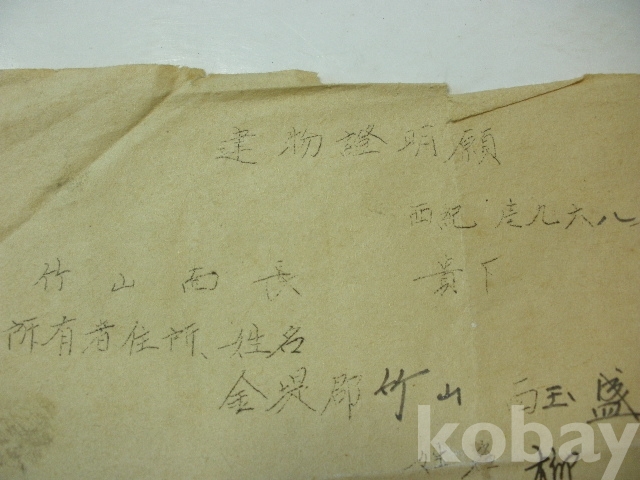 建物證明願
西紀
竹山面長 貴下
所有者住所、姓名
金堤郡竹山面玉盛
姓名 柳
kobay